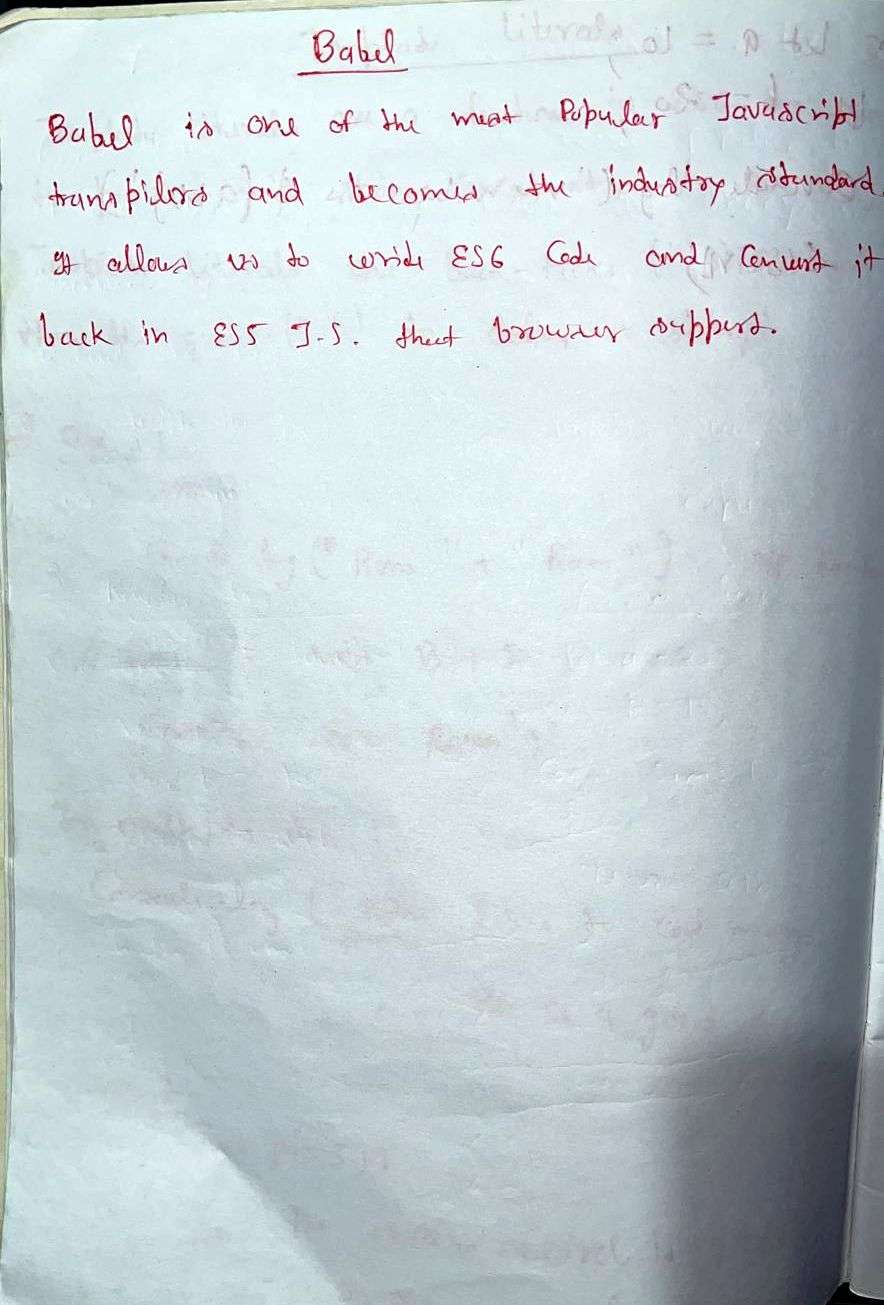 Babel
Babel is one of the most Popular Javascript
transpilers and becomes the industry standard.
It allows us to write ES6 Code and Convert it
back in ES5 J.S. that browser support.